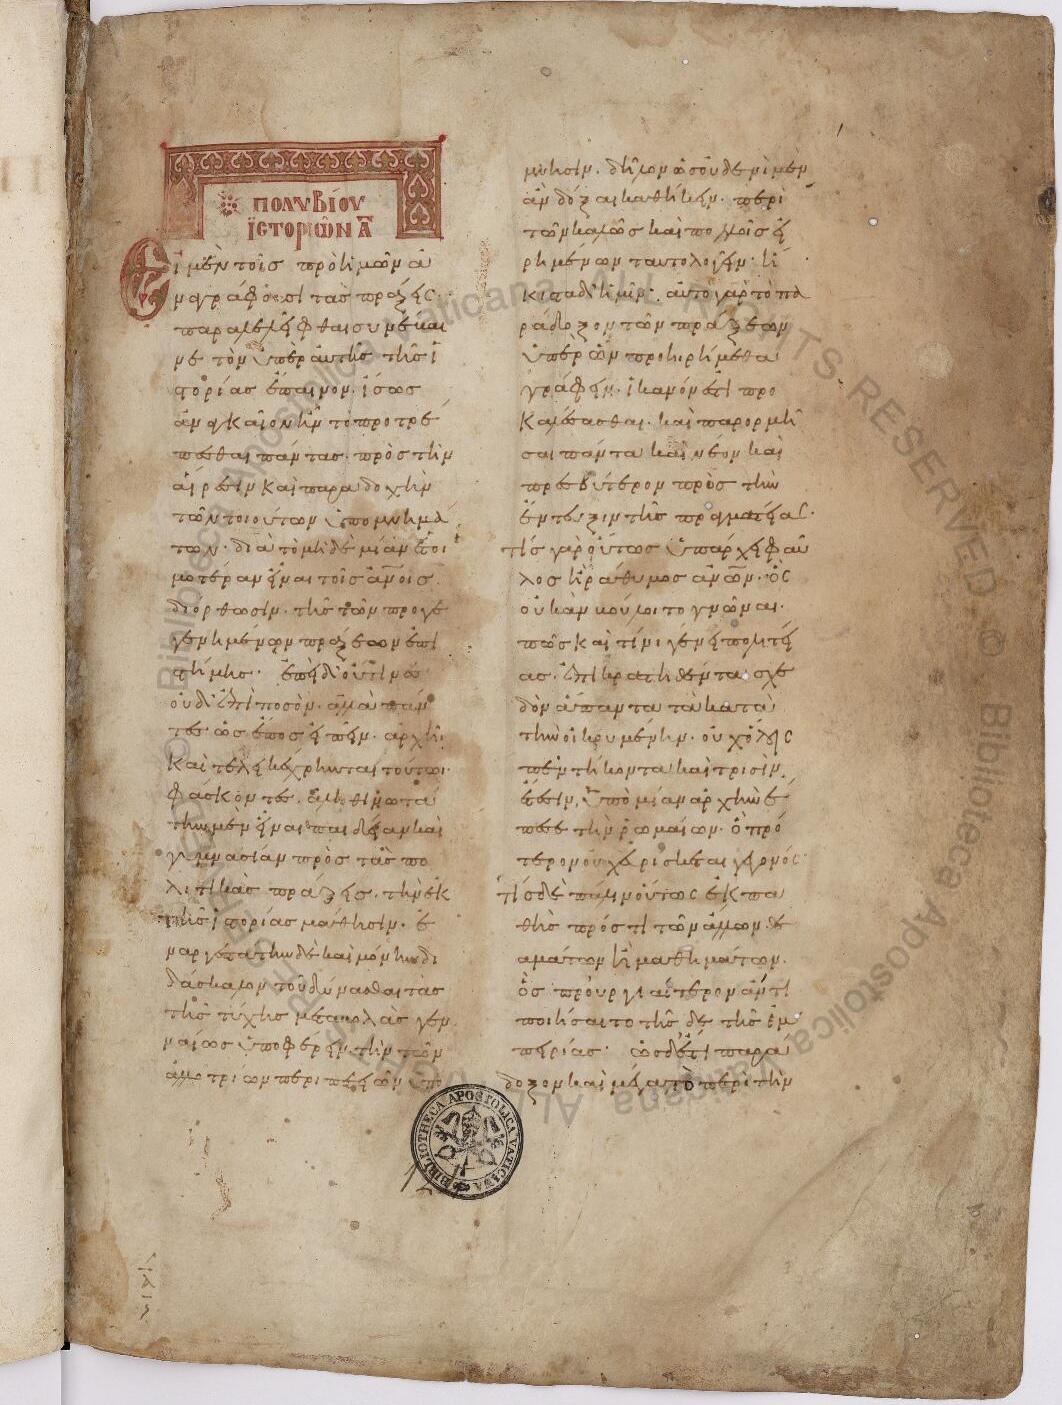 ΠΟΛΥΒΙΟΥ
ΙΣΤΟΡΙΩΝ Α
Εἰ μὲν τοῖς πρὸ ἡμῶν ἀ
ναγράφουσι τὰς πράξεις
παραλελεῖφθαι συνέβαι
νε τὸν ὑπὲρ αὐτῆς τῆς ἱ
στορίας ἔπαινον· ἴσως
ἀναγκαῖον ἦν τὸ προτρέ
πεσθαι πάντας πρὸς τὴν
αἵρεσιν καὶ παραδοχὴν
τῶν τοιούτων ὑπομνημά
των· διὰ τὸ μηδεμίαν ἑτοι
μοτέραν εἶναι τοῖς ἀνοις
διόρθωσιν· τῆς τῶν προγε
γενημένων πράξεων ἐπι
στήμης· ἐπεὶ δ' οὐ τινὲς
οὐδ' ἐπὶ ποσόν· ἀλλὰ πάν
τες ὡς ἔπος εἰπεῖν· ἀρχῇ
καὶ τέλει κέχρηνται τούτωι·
φάσκοντες ἀληθινωτά
την μὲν εἶναι παιδείαν καὶ
γυμνασίαν πρὸς τὰς πο
λιτικὰς πράξεις· τὴν ἐκ
τῆς ἱστορίας μάθησιν· ἐ
ναργεστάτην δὲ καὶ μόνην δι
δάσκαλον τοῦ δύνασθαι τὰς
τῆς τύχης μεταβολὰς γεν
ναίως ὑποφέρειν· τὴν τῶν
ἀλλοτρίων περιπετειῶν ὑπό
μνησιν· δῆλον ὡς οὐδενὶ μὲν
ἂν δόξαι καθήκειν· περὶ
τῶν καλῶς καὶ πολλοῖς εἰ
ρημένων ταυτολογεῖν· ἥ
κιστα δ' ἡμῖν· αὐτὸ γὰρ τὸ πα
ράδοξον τῶν πράξεων
ὑπὲρ ὧν προῃρήμεθα
γράφειν· ἱκανόν ἐστι προ
καλέσασθαι· καὶ παρορμῆ
σαι πάντα καὶ νέον καὶ
πρεσβύτερον πρὸς τὴν
ἔντευξιν τῆς πραγματείας·
τίς γὰρ οὕτως ὑπάρχει φαῦ
λος ἢ ῥάθυμος ἀνων· ὃς
οὐκ ἂν βούλοιτο γνῶναι·
πῶς καὶ τίνι γένει πολιτεί
ας· ἐπικρατηθέντα σχε
δὸν ἅπαντα τὰ κατὰ
τὴν οἰκουμένην· οὐχ ὅλοις
πεντήκοντα καὶ τρισὶν
ἔτεσιν, ὑπὸ μίαν ἀρχὴν ἔ
πεσε τὴν ῥωμαίων· ὃ πρό
τερον οὐχ εὑρίσκεται γεγονός·
τίς δὲ πάλιν οὕτως ἐκπα
θὴς πρός τι τῶν ἄλλων θε
αμάτων ἢ μαθημάτων·
ὃς προυργιαίτερον ἄν τι
ποιήσαιτο τῆσδε τῆς ἐμ
πειρίας· ὡς δ' ἔστι παρά
δοξον καὶ μέγα τὸ περὶ τὴν
BIBLIOTHECA APOSTOLICA VATICANA
© Biblioteca Apostolica Vaticana ALL RIGHTS RESERVED